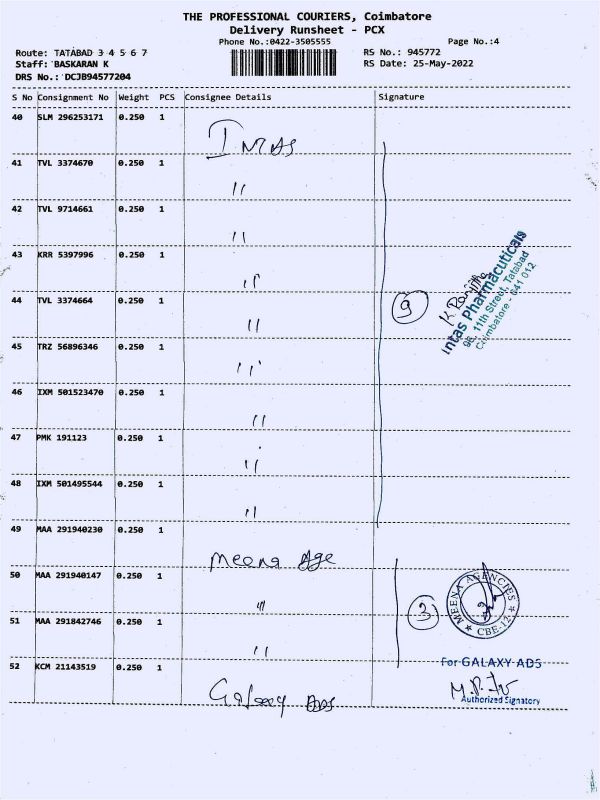 THE PROFESSIONAL COURIERS, Coimbatore
Delivery Runsheet - PCX
Phone No.:0422-3505555
Page No.:4
Route: TATABAD 3 4 5 6 7
RS No.: 945772
Staff: BASKARAN K
RS Date: 25-May-2022
DRS No.: DCJB94577204
S No Consignment No Weight PCS Consignee Details Signature
40 SLM 296253171 0.250 1
INTAS
41 TVL 3374670 0.250 1
"
42 TVL 9714661 0.250 1
"
43 KRR 5397996 0.250 1
"
44 TVL 3374664 0.250 1
"
9
K. 
Intas Pharmacuticals
96, 11th Street, Tatabad
Coimbatore - 641 012
45 TRZ 56896346 0.250 1
"
46 IXM 501523470 0.250 1
"
47 PMK 191123 0.250 1
"
48 IXM 501495544 0.250 1
"
49 MAA 291940230 0.250 1
Meena Age
50 MAA 291940147 0.250 1
"
3
MEENA AGENCIES
★ CBE-12 ★
51 MAA 291842746 0.250 1
"
52 KCM 21143519 0.250 1
Galaxy Ads
For GALAXY ADS
Authorized Signatory